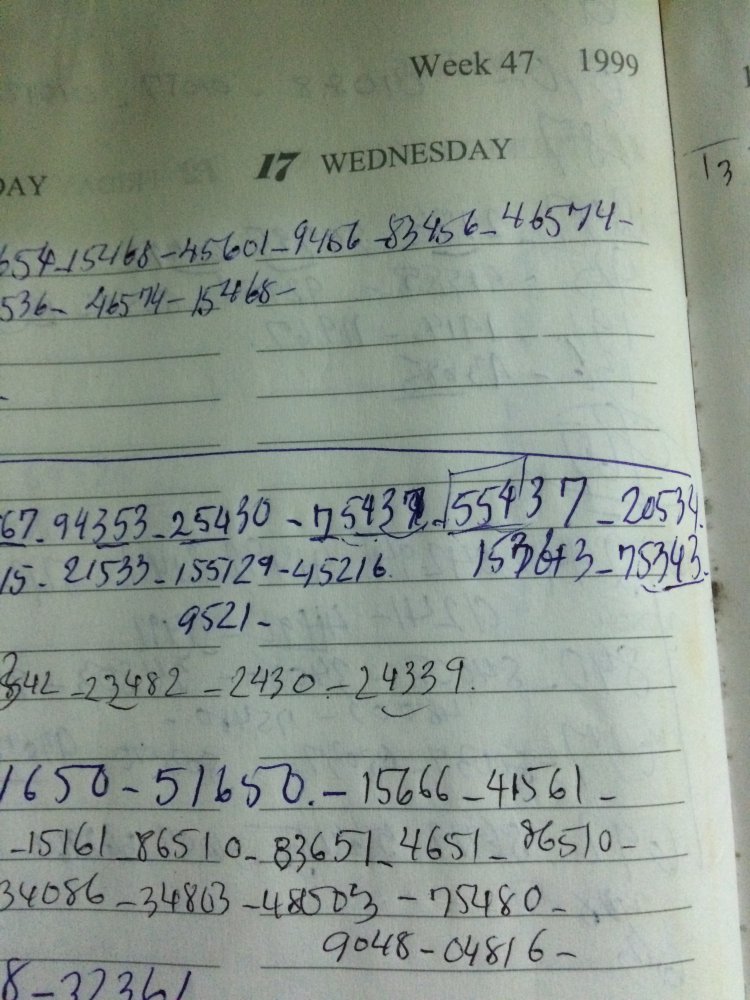 Week 47 1999
17 WEDNESDAY
DAY
13
654-15468-45601-9456-83456-46574-
536-46574-15468-
67-94353-25430-75437-55437-20534.
15-21533-155129-45216. 153643-75343.
9521-
342-23482-2430-24339.
1650-51650.-15666-41561-
-15161-86510-83651-4651-86510-
34086-34803-48503-75480-
9048-04816-
8-32361